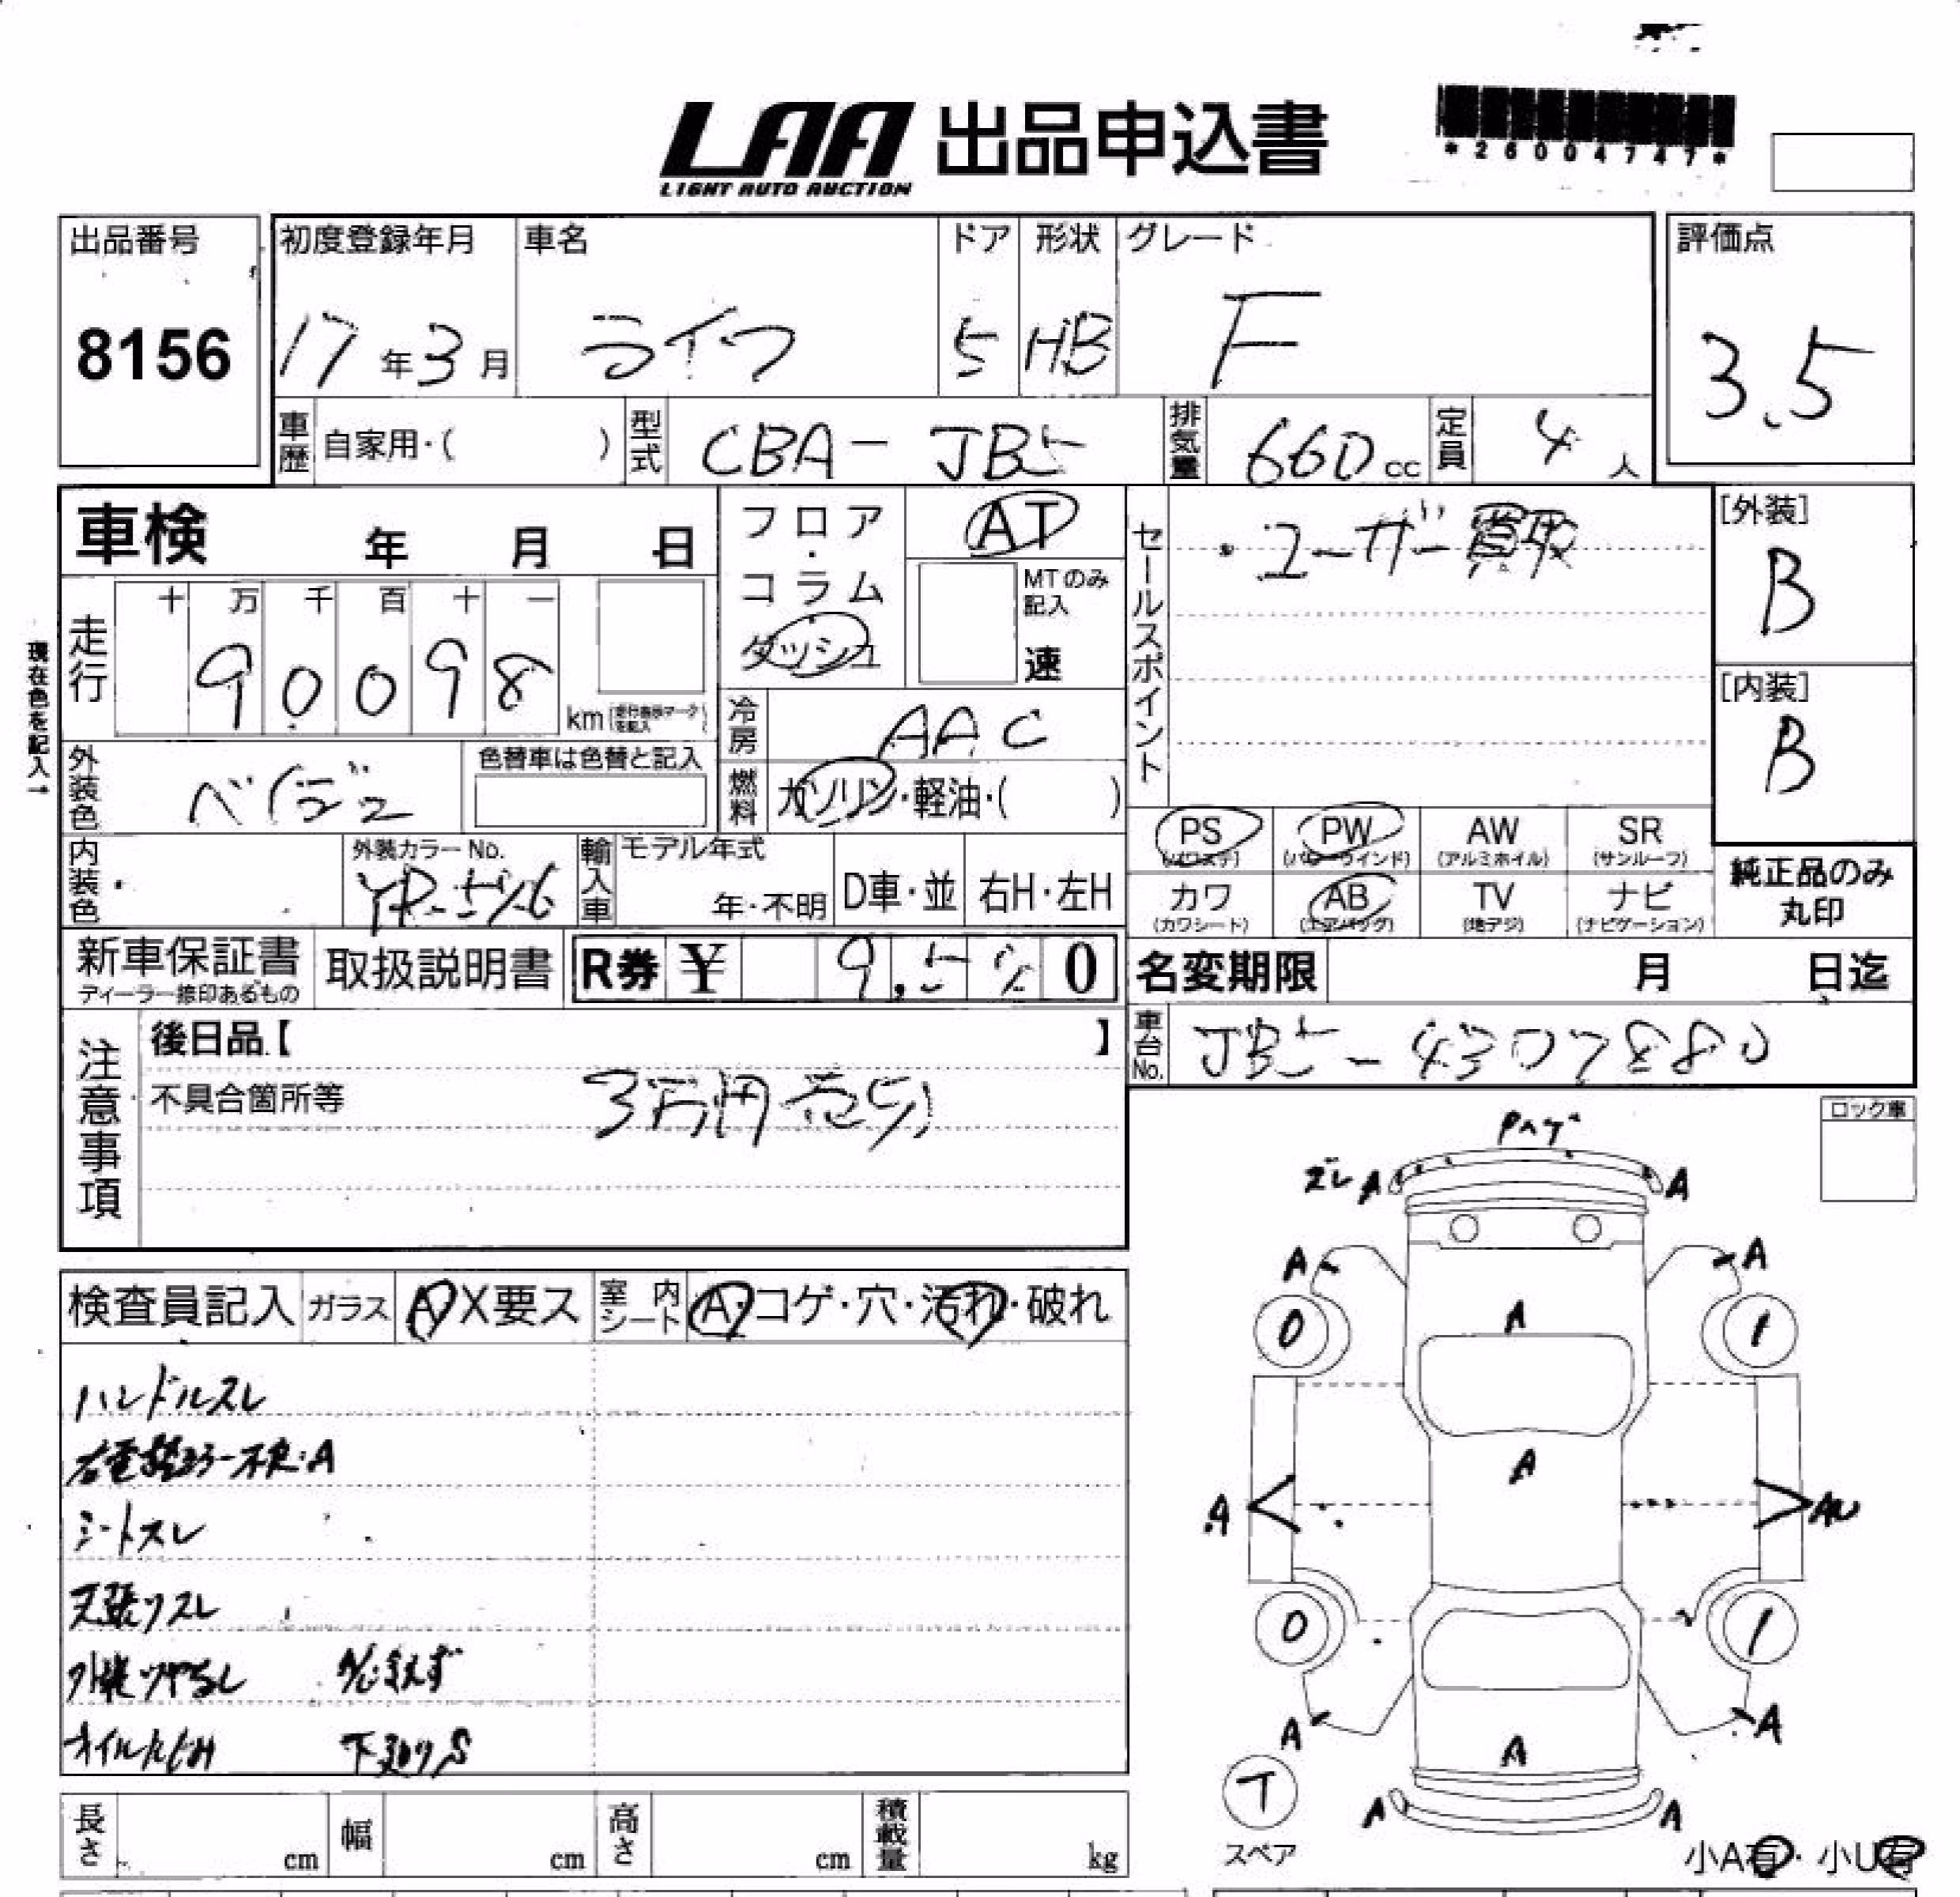 LAA 出品申込書
LIGHT AUTO AUCTION
*26004747*
出品番号
8156
初度登録年月
17年3月
車名
ライフ
ドア
5
形状
HB
グレード
F
評価点
3.5
車歴 自家用・( )
型式 CBA-JB5
排気量 660cc
定員 4人
車検 年 月 日
走行
十 万 千 百 十 一
9 0 0 9 8
km
現在色を記入→
フロア・コラム
ダッシュ
AT
MTのみ記入
速
冷房 AAC
燃料 ガソリン・軽油・( )
外装色 ベージュ
色替車は色替と記入
内装色
外装カラーNo.
輸入車
モデル年式
年・不明
D車・並
右H・左H
セールスポイント
・ユーザー買取
[外装]
B
[内装]
B
PS
(パワステ)
PW
(パワーウインド)
AW
(アルミホイル)
SR
(サンルーフ)
カワ
(カワシート)
AB
(エアバッグ)
TV
(地デジ)
ナビ
(ナビゲーション)
純正品のみ
丸印
新車保証書
ディーラー捺印あるもの
取扱説明書
R券 ¥ 9,5 0
名変期限 月 日迄
車台No. JB5-4307880
注意事項
後日品【 】
不具合箇所等
3万円売切
ロック車
検査員記入
ガラス A X要ス
室内シート A・コゲ・穴・汚れ・破れ
ハンドルスレ
右電格ミラー不良・A
シートスレ
天張リスレ
外装ツヤなし
オイルにじみ
下廻りS
Pハゲ
ズレ A A
A A
0 1
A
A
A AU
0 1
A A
A
A A
T
スペア
小A有・小U有
長さ cm
幅 cm
高さ cm
積載量 kg